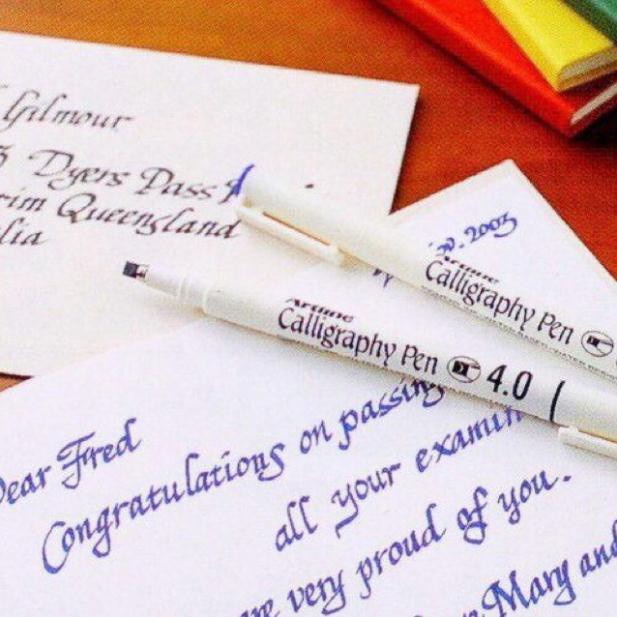 Gilmour
Dyers Pass
Queensland
2003
Artline
Calligraphy Pen
Artline
Calligraphy Pen 4.0
Dear Fred
Congratulations on passing
all your
very proud of you.
Mary and